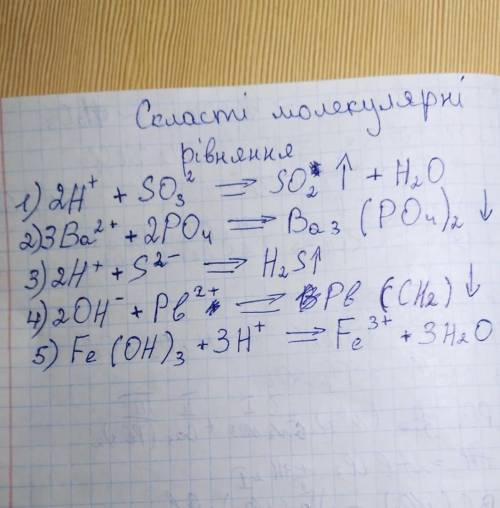 Скласті молекулярні
рівняння
1) 2H⁺ + SO₃² = SO₂ ↑ + H₂O
2) 3Ba²⁺ + 2PO₄ = Ba₃(PO₄)₂ ↓
3) 2H⁺ + S²⁻ = H₂S↑
4) 2OH⁻ + Pb²⁺ = Pb(CH₂)↓
5) Fe(OH)₃ + 3H⁺ = Fe³⁺ + 3H₂O